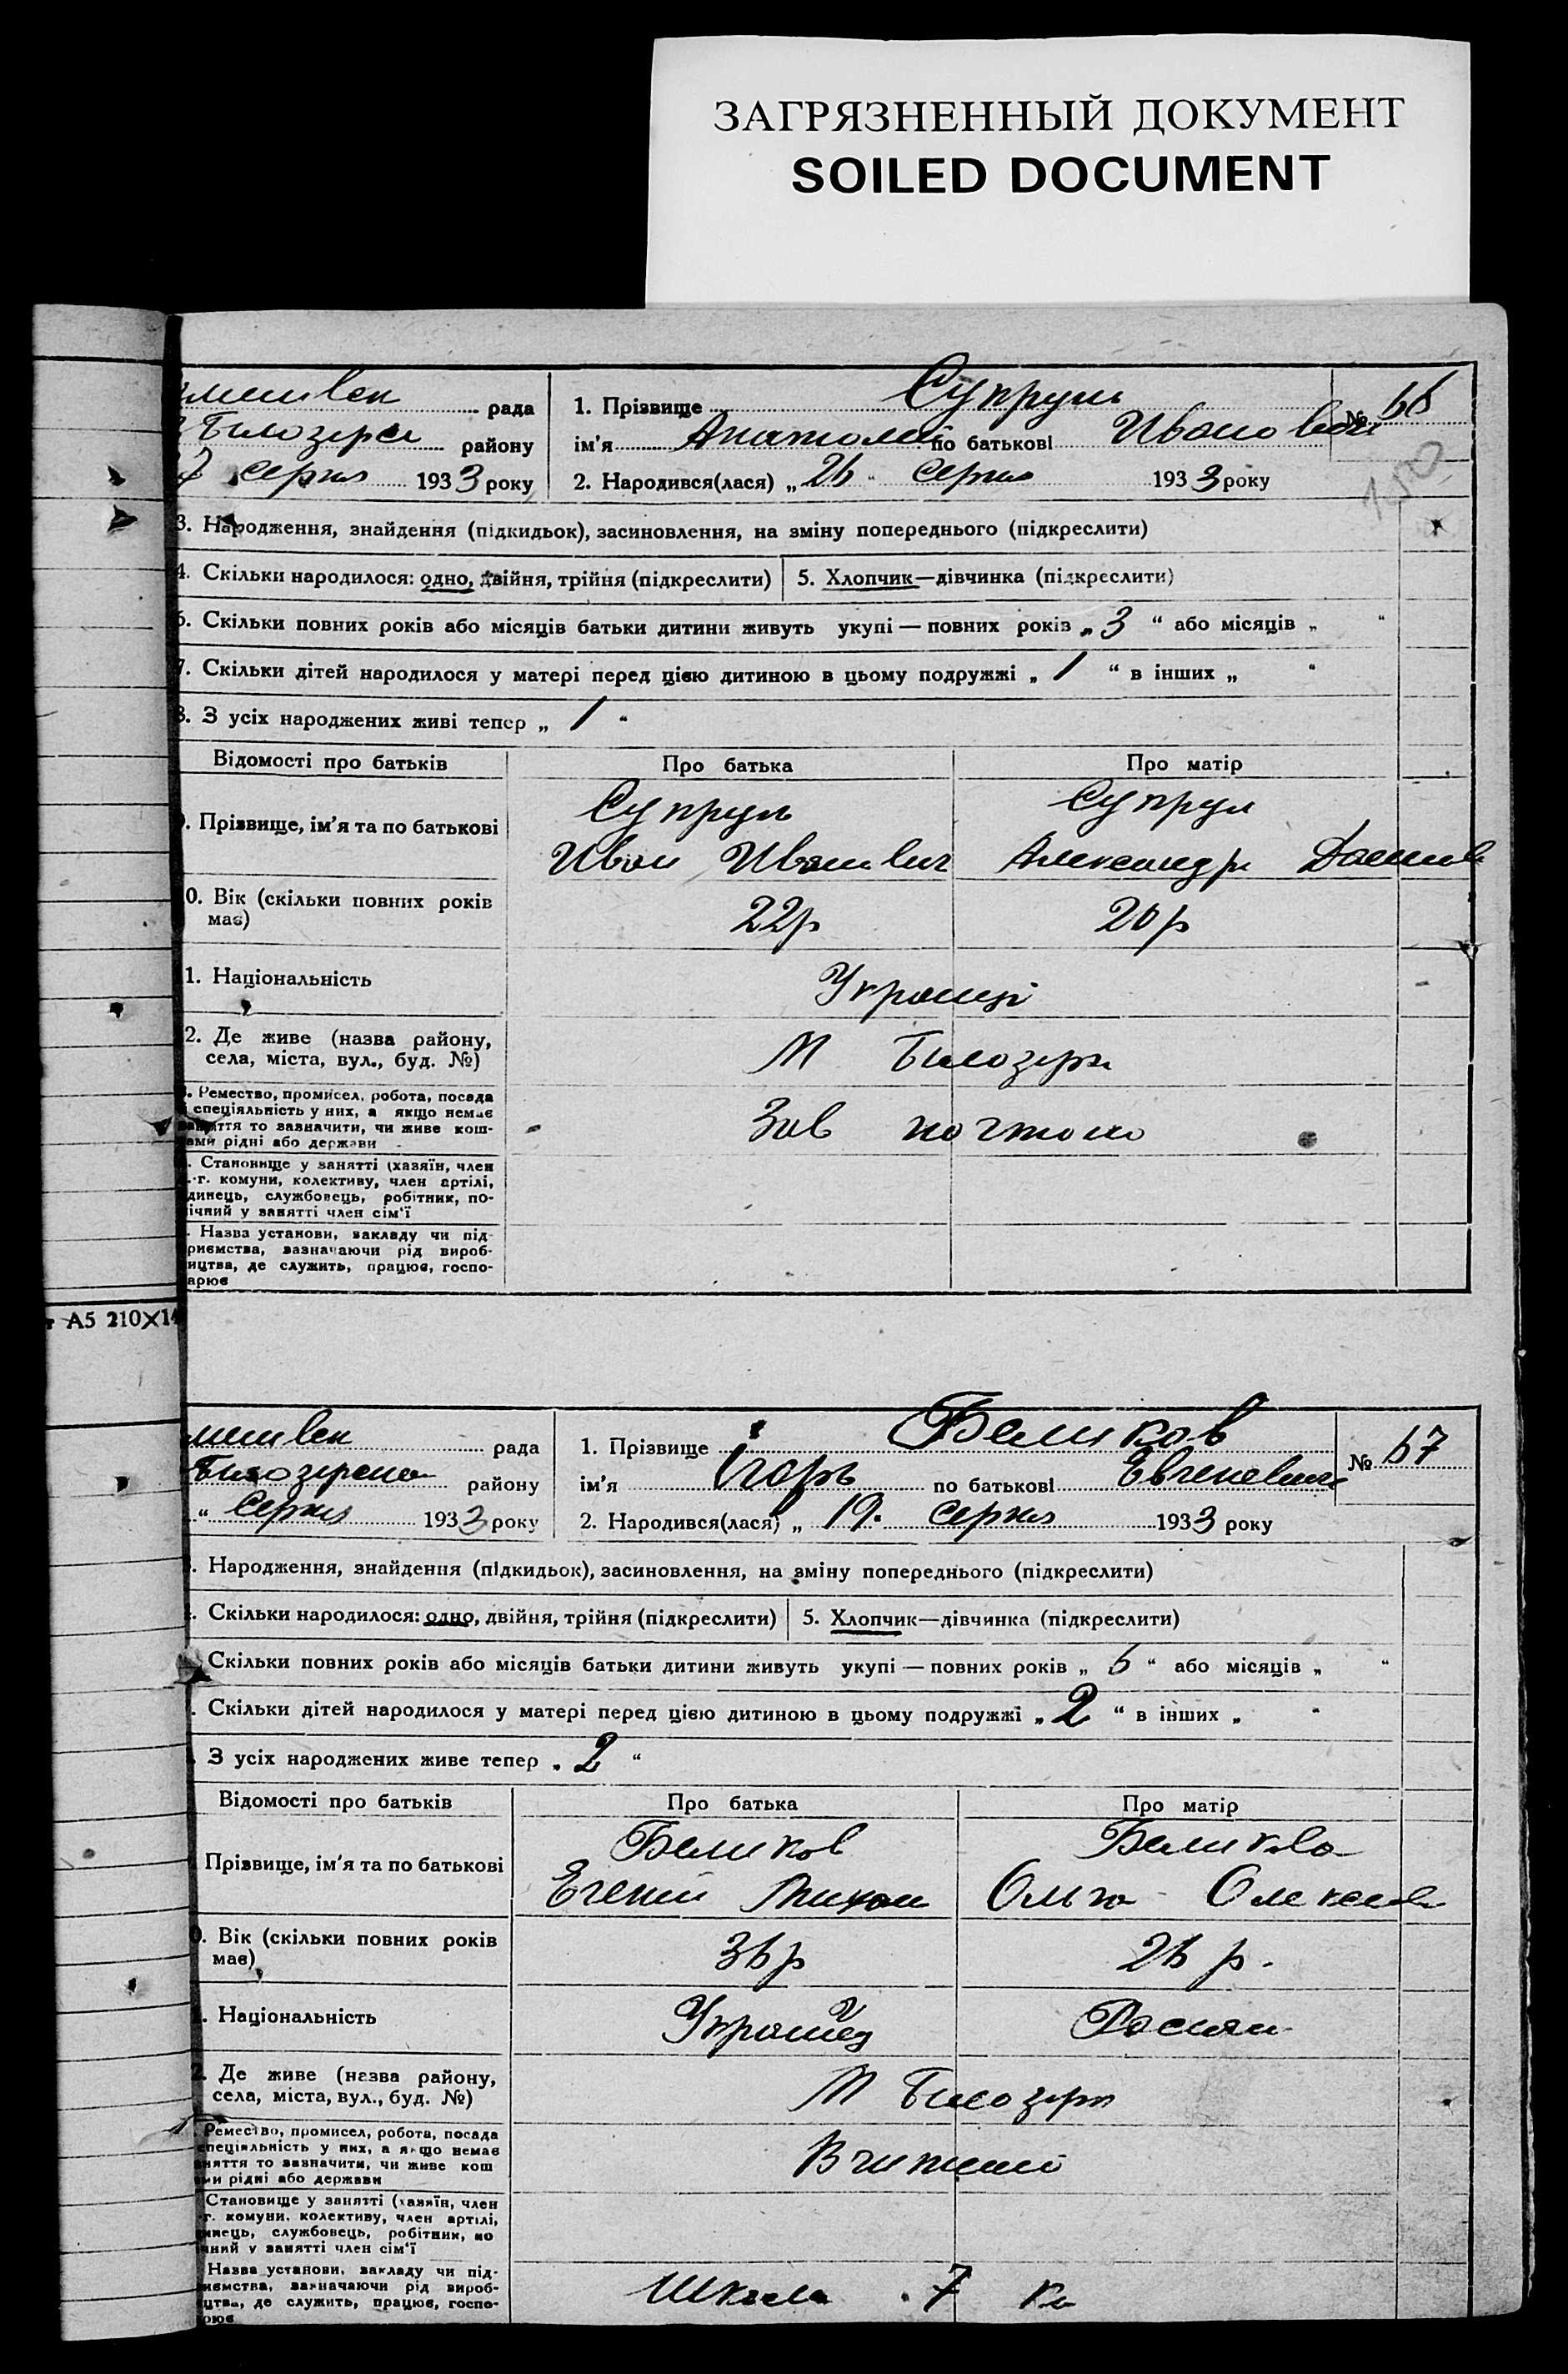 ЗАГРЯЗНЕННЫЙ ДОКУМЕНТ
SOILED DOCUMENT
рада
1. Прізвище Супрун
№ 66
Білозерс району
ім'я Анатолій по батькові Ивонович
7 серпня 1933 року
2. Народився(лася) „26“ Серпня 1933 року
3. Народження, знайдення (підкидьок), засиновлення, на зміну попереднього (підкреслити)
4. Скільки народилося: одно, двійня, трійня (підкреслити)
5. Хлопчик—дівчинка (підкреслити)
6. Скільки повних років або місяців батьки дитини живуть укупі — повних років „3“ або місяців „ “
7. Скільки дітей народилося у матері перед цією дитиною в цьому подружжі „1“ в інших „ “
8. З усіх народжених живі тепер „1“
Відомості про батьків
Про батька
Про матір
. Прізвище, ім'я та по батькові
Супрун
Иван Иванович
Супрун
Александра
0. Вік (скільки повних років
має)
22р
1. Національність
Українці
2. Де живе (назва району,
села, міста, вул., буд. №)
М Білозерка
. Ремество, промисел, робота, посада
спеціяльність у них, а якщо немає
няття то зазначити, чи живе кош-
ами рідні або держави
Зав почтою
. Становище у занятті (хазяїн, член
.-г. комуни, колективу, член артілі,
динець, службовець, робітник, по-
ічний у занятті член сім'ї
. Назва установи, закладу чи під-
риємства, зазначаючи рід вироб-
ицтва, де служить, працює, госпо-
арює
А5 210X14
рада
1. Прізвище Беликов
№ 67
району
ім'я Ігорь по батькові Евгеневич
“ Серпня 1933 року
2. Народився(лася) „19. серпня 1933 року
. Народження, знайдення (підкидьок), засиновлення, на зміну попереднього (підкреслити)
. Скільки народилося: одно, двійня, трійня (підкреслити)
5. Хлопчик—дівчинка (підкреслити)
Скільки повних років або місяців батьки дитини живуть укупі — повних років „6“ або місяців „ “
. Скільки дітей народилося у матері перед цією дитиною в цьому подружжі „2“ в інших „ “
З усіх народжених живе тепер „2“
Відомості про батьків
Про батька
Про матір
Прізвище, ім'я та по батькові
Беликов
Евгений Михаи
Беликова
Ольга Олексеев
. Вік (скільки повних років
має)
36р
26 р.
. Національність
Українец
Росиян
. Де живе (назва району,
села, міста, вул., буд. №)
М Білозерка
Ремество, промисел, робота, посада
спеціяльність у них, а якщо немає
няття то зазначити, чи живе кош
ми рідні або держави
Вчителі
Становище у занятті (хазяїн, член
-г. комуни, колективу, член артілі,
инець, службовець, робітник, по
чний у занятті член сім'ї
Назва установи, закладу чи під-
иємства, зазначаючи рід вироб-
цтва, де служить, працює, госпо-
рює
Школа 7 К